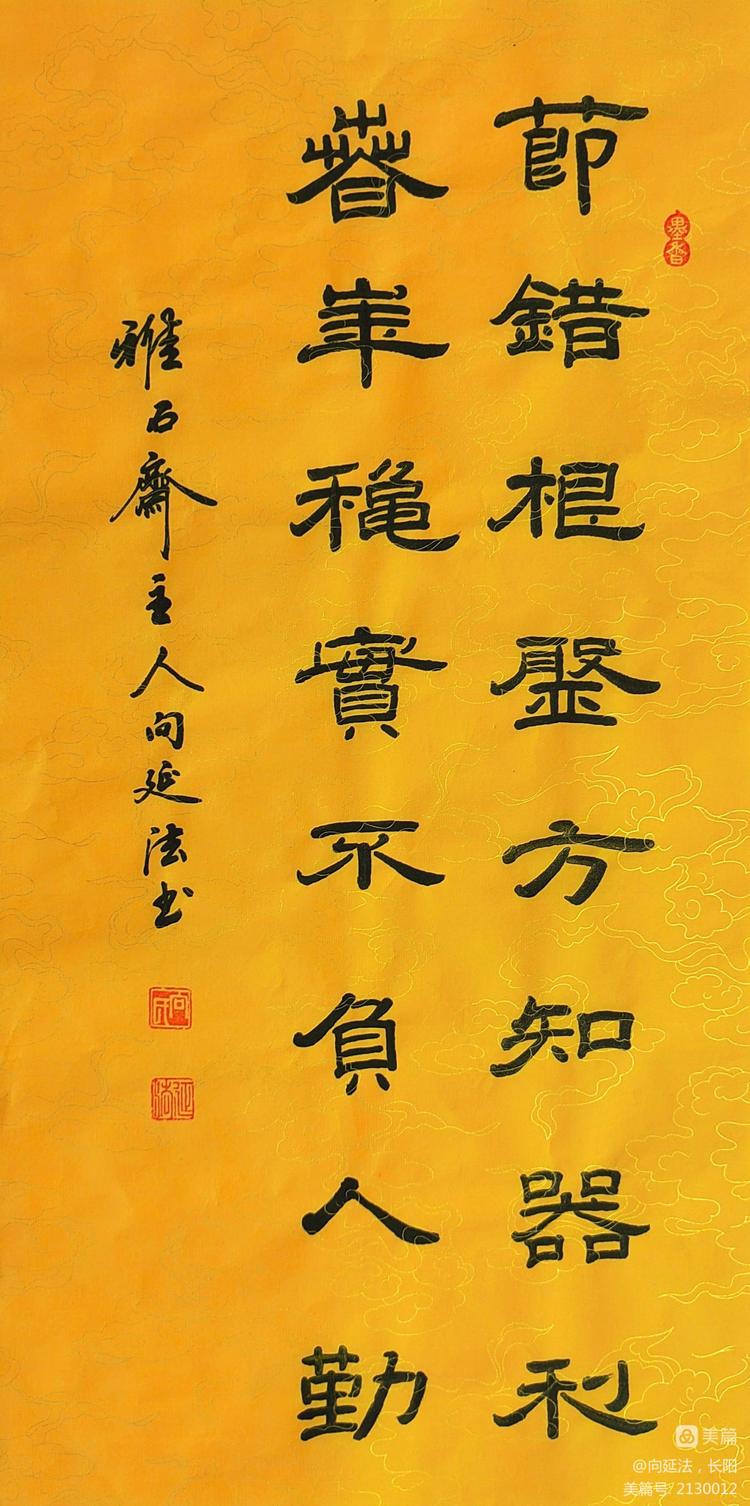 莭錯根盤方知器利
萅崋龝實不負人勤
雅石齋主人向延法书
墨香
延法
美篇
@向延法，长阳
美篇号:2130012